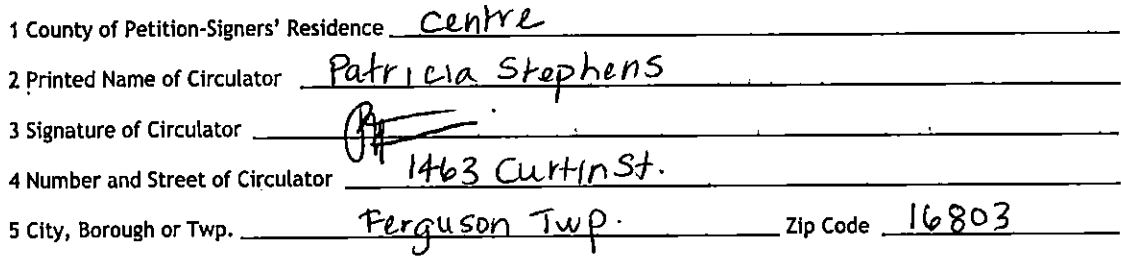 1 County of Petition-Signers' Residence Centre
2 Printed Name of Circulator Patricia Stephens
3 Signature of Circulator
4 Number and Street of Circulator 1463 Curtin St.
5 City, Borough or Twp. Ferguson Twp. Zip Code 16803